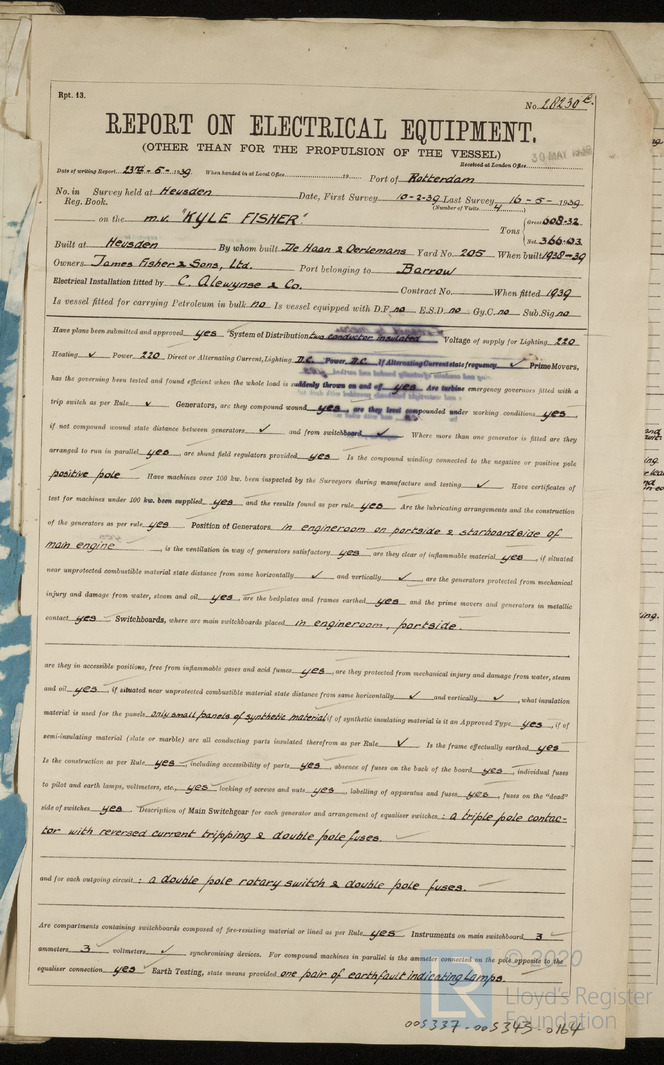 Rpt. 13.
No. 28230 E.
REPORT ON ELECTRICAL EQUIPMENT.
(OTHER THAN FOR THE PROPULSION OF THE VESSEL)
Received at London Office
Date of writing Report 23rd - 5 - 1939 When handed in at Local Office 19 Port of Rotterdam
No. in Survey held at Heusden Date, First Survey 10-2-39 Last Survey 16-5-1939
Reg. Book. (Number of Visits 4 )
on the m.v. "KYLE FISHER". Tons { Gross 608.32
Net 366.03
Built at Heusden By whom built De Haan & Oerlemans Yard No. 205 When built 1938-39
Owners James Fisher & Sons, Ltd. Port belonging to Barrow
Electrical Installation fitted by C. Alewynse & Co. Contract No. When fitted 1939
Is vessel fitted for carrying Petroleum in bulk no Is vessel equipped with D.F. no E.S.D. no Gy.C. no Sub.Sig no
Have plans been submitted and approved yes System of Distribution two conductor insulated Voltage of supply for Lighting 220
Heating ✓ Power 220 Direct or Alternating Current, Lighting D.C. Power D.C. If Alternating Current state frequency ✓ Prime Movers,
has the governing been tested and found efficient when the whole load is suddenly thrown on and off yes Are turbine emergency governors fitted with a
trip switch as per Rule ✓ Generators, are they compound wound yes, are they level compounded under working conditions yes,
if not compound wound state distance between generators ✓ and from switchboard ✓ Where more than one generator is fitted are they
arranged to run in parallel yes, are shunt field regulators provided yes Is the compound winding connected to the negative or positive pole
positive pole Have machines over 100 kw. been inspected by the Surveyors during manufacture and testing ✓ Have certificates of
test for machines under 100 kw. been supplied yes and the results found as per rule yes Are the lubricating arrangements and the construction
of the generators as per rule yes Position of Generators in engineroom on portside & starboardside of
main engine, is the ventilation in way of generators satisfactory yes, are they clear of inflammable material yes, if situated
near unprotected combustible material state distance from same horizontally ✓ and vertically ✓, are the generators protected from mechanical
injury and damage from water, steam and oil yes, are the bedplates and frames earthed yes and the prime movers and generators in metallic
contact yes Switchboards, where are main switchboards placed in engineroom, portside.
are they in accessible positions, free from inflammable gases and acid fumes yes, are they protected from mechanical injury and damage from water, steam
and oil yes, if situated near unprotected combustible material state distance from same horizontally ✓ and vertically ✓, what insulation
material is used for the panels only small panels of synthetic material if of synthetic insulating material is it an Approved Type yes, if of
semi-insulating material (slate or marble) are all conducting parts insulated therefrom as per Rule ✓ Is the frame effectually earthed yes
Is the construction as per Rule yes, including accessibility of parts yes, absence of fuses on the back of the board yes, individual fuses
to pilot and earth lamps, voltmeters, etc., yes locking of screws and nuts yes, labelling of apparatus and fuses yes, fuses on the "dead"
side of switches yes Description of Main Switchgear for each generator and arrangement of equaliser switches : a triple pole contac-
tor with reversed current tripping & double pole fuses.
and for each outgoing circuit : a double pole rotary switch & double pole fuses.
Are compartments containing switchboards composed of fire-resisting material or lined as per Rule yes Instruments on main switchboard 3
ammeters 3 voltmeters ✓ synchronising devices. For compound machines in parallel is the ammeter connected on the pole opposite to the
equaliser connection yes Earth Testing, state means provided one pair of earthfault indicating lamps.
© 2020
Lloyd's Register
Foundation
005337-005343-0164